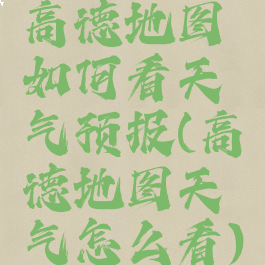 高德地图
如何看天
气预报(高
德地图天
气怎么看)